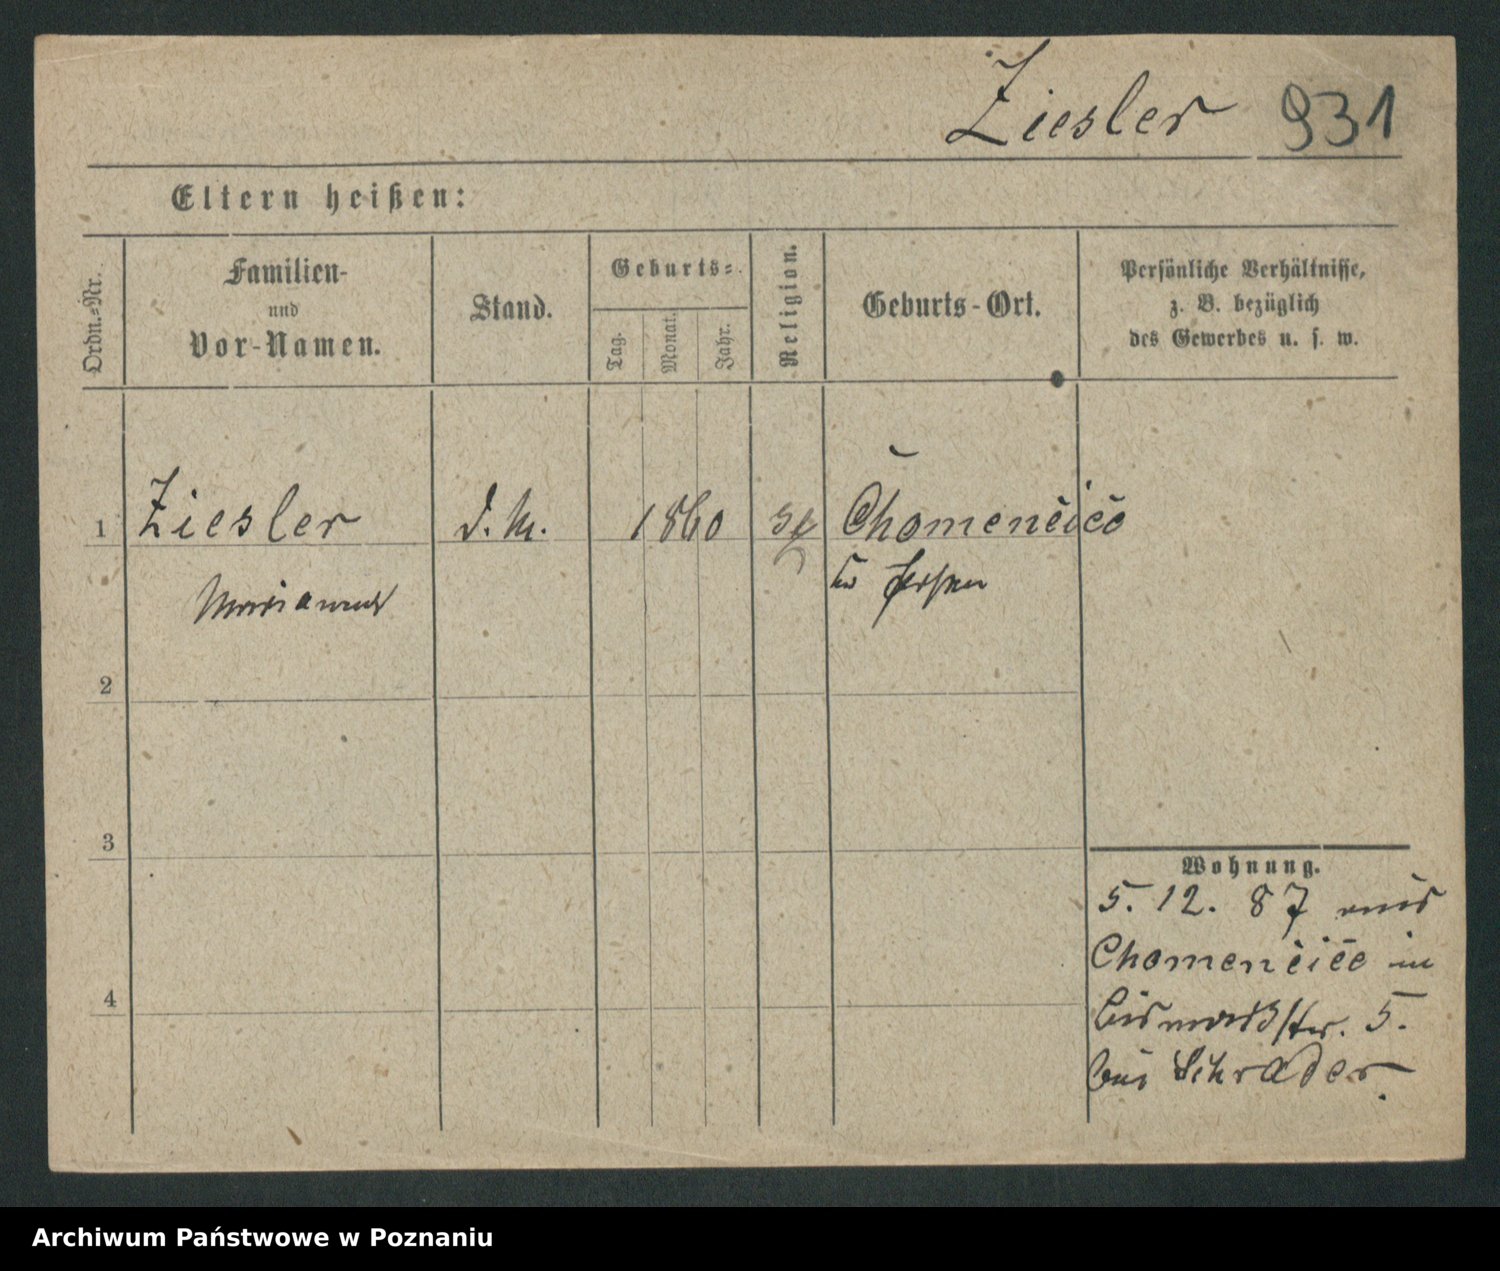 Ziesler 931
Eltern heißen:
Ordn.-Nr.
Familien-
und
Vor-Namen.
Stand.
Geburts-
Tag.
Monat.
Jahr.
Religion.
Geburts-Ort.
Persönliche Verhältnisse,
z. B. bezüglich
des Gewerbes u. s. w.
1 Ziesler d. M. 1860 Chomenčičč
Marianna
Kr Posen
2
3
4
Wohnung.
5. 12. 87 aus
Chomenčičč in
Bismarckstr. 5.
bei Schrader.
Archiwum Państwowe w Poznaniu